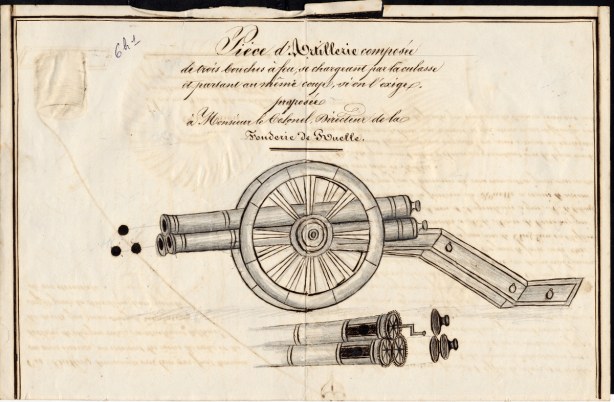 Pièce d'Artillerie composée
de trois bouches à feu, se chargeant par la culasse
et partant au même coup, si on l'exige,
proposée
à Monsieur le Colonel, Directeur de la
Fonderie de Ruelle.